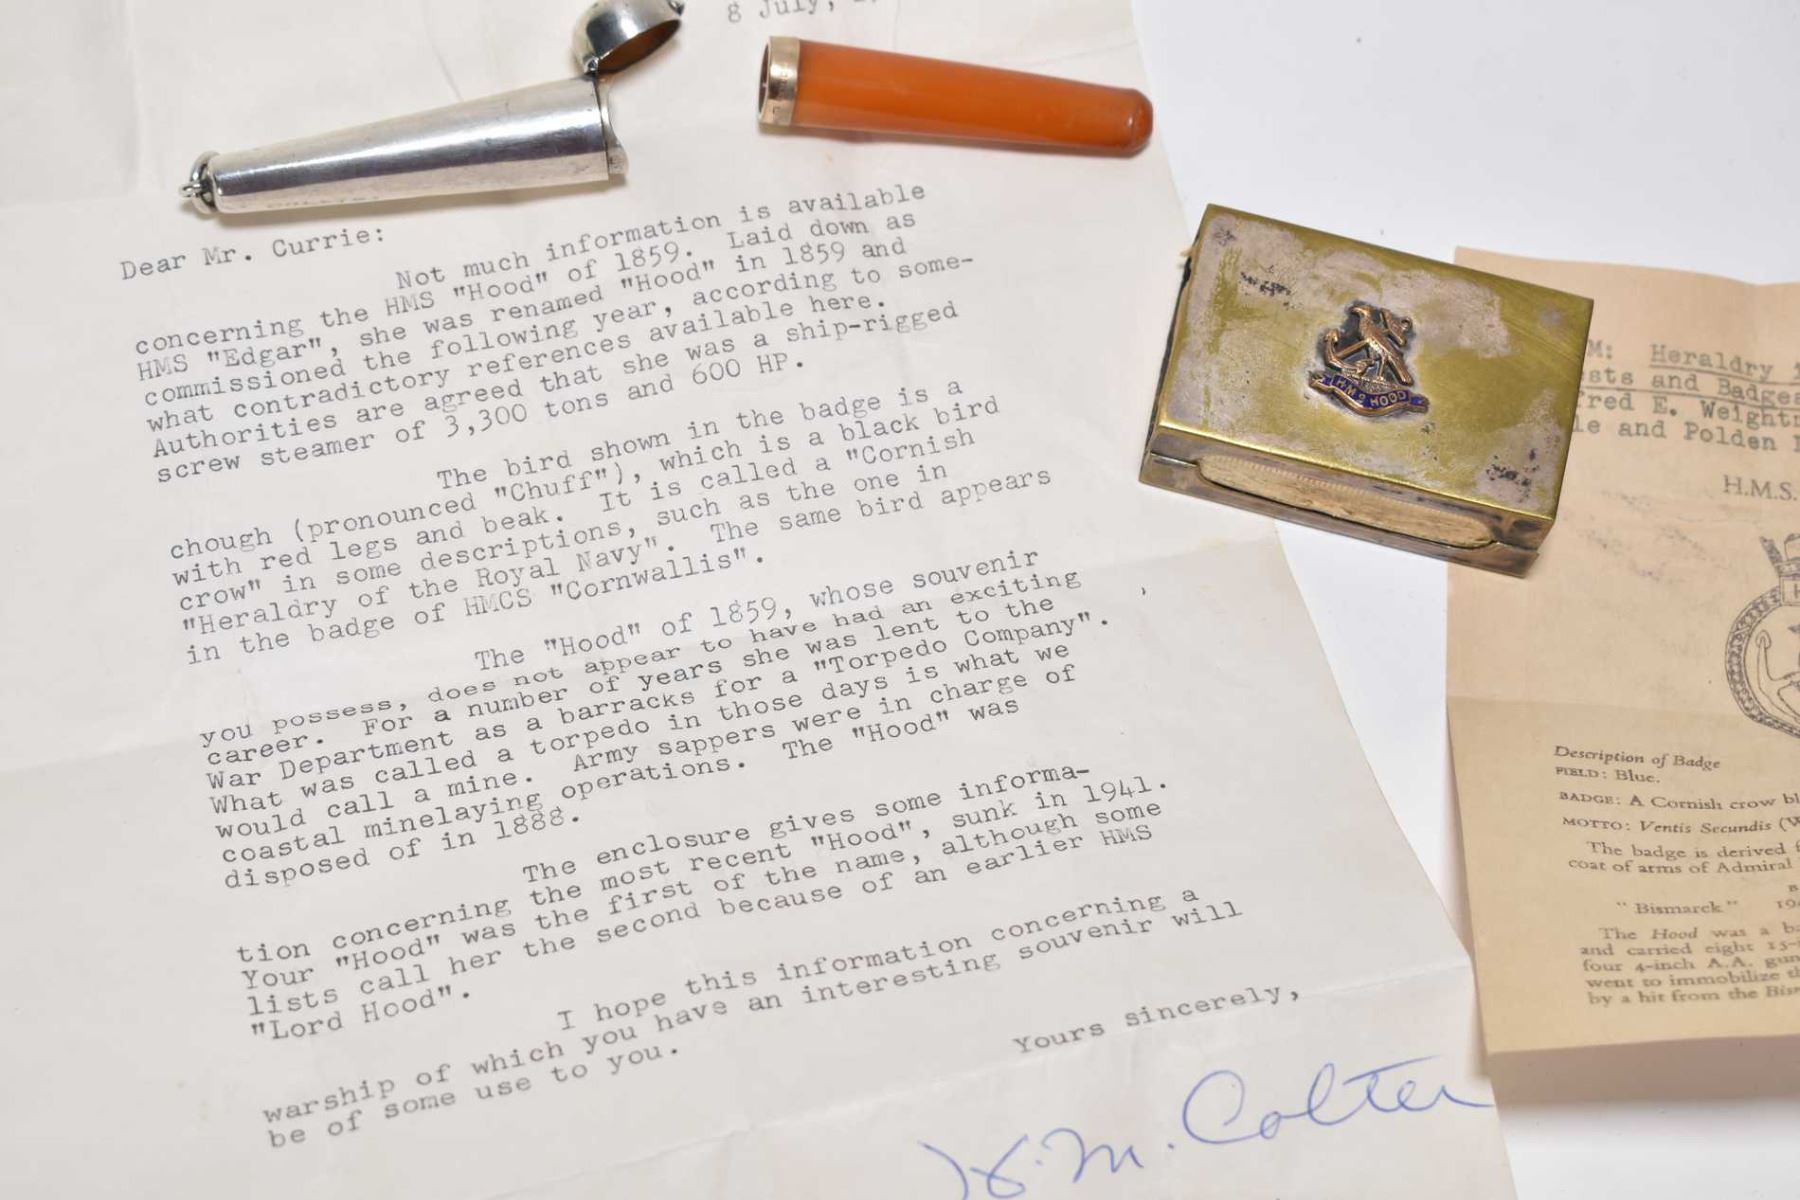 8 July,
Dear Mr. Currie:
Not much information is available
concerning the HMS "Hood" of 1859. Laid down as
HMS "Edgar", she was renamed "Hood" in 1859 and
commissioned the following year, according to some-
what contradictory references available here.
Authorities are agreed that she was a ship-rigged
screw steamer of 3,300 tons and 600 HP.
The bird shown in the badge is a
chough (pronounced "Chuff"), which is a black bird
with red legs and beak. It is called a "Cornish
crow" in some descriptions, such as the one in
"Heraldry of the Royal Navy". The same bird appears
in the badge of HMCS "Cornwallis".
The "Hood" of 1859, whose souvenir
you possess, does not appear to have had an exciting
career. For a number of years she was lent to the
War Department as a barracks for a "Torpedo Company".
What was called a torpedo in those days is what we
would call a mine. Army sappers were in charge of
coastal minelaying operations. The "Hood" was
disposed of in 1888.
The enclosure gives some informa-
tion concerning the most recent "Hood", sunk in 1941.
Your "Hood" was the first of the name, although some
lists call her the second because of an earlier HMS
"Lord Hood".
I hope this information concerning a
warship of which you have an interesting souvenir will
be of some use to you.
Yours sincerely,
H.M. Colter
H.M.S HOOD
M: Heraldry
sts and Badges
fred E. Weightm
le and Polden
H.M.S.
Description of Badge
FIELD: Blue.
BADGE: A Cornish crow bl
MOTTO: Ventis Secundis (W
The badge is derived f
coat of arms of Admiral
B
"Bismarck" 194
The Hood was a ba
and carried eight 15-i
four 4-inch A.A. gun
went to immobilize th
by a hit from the Bism